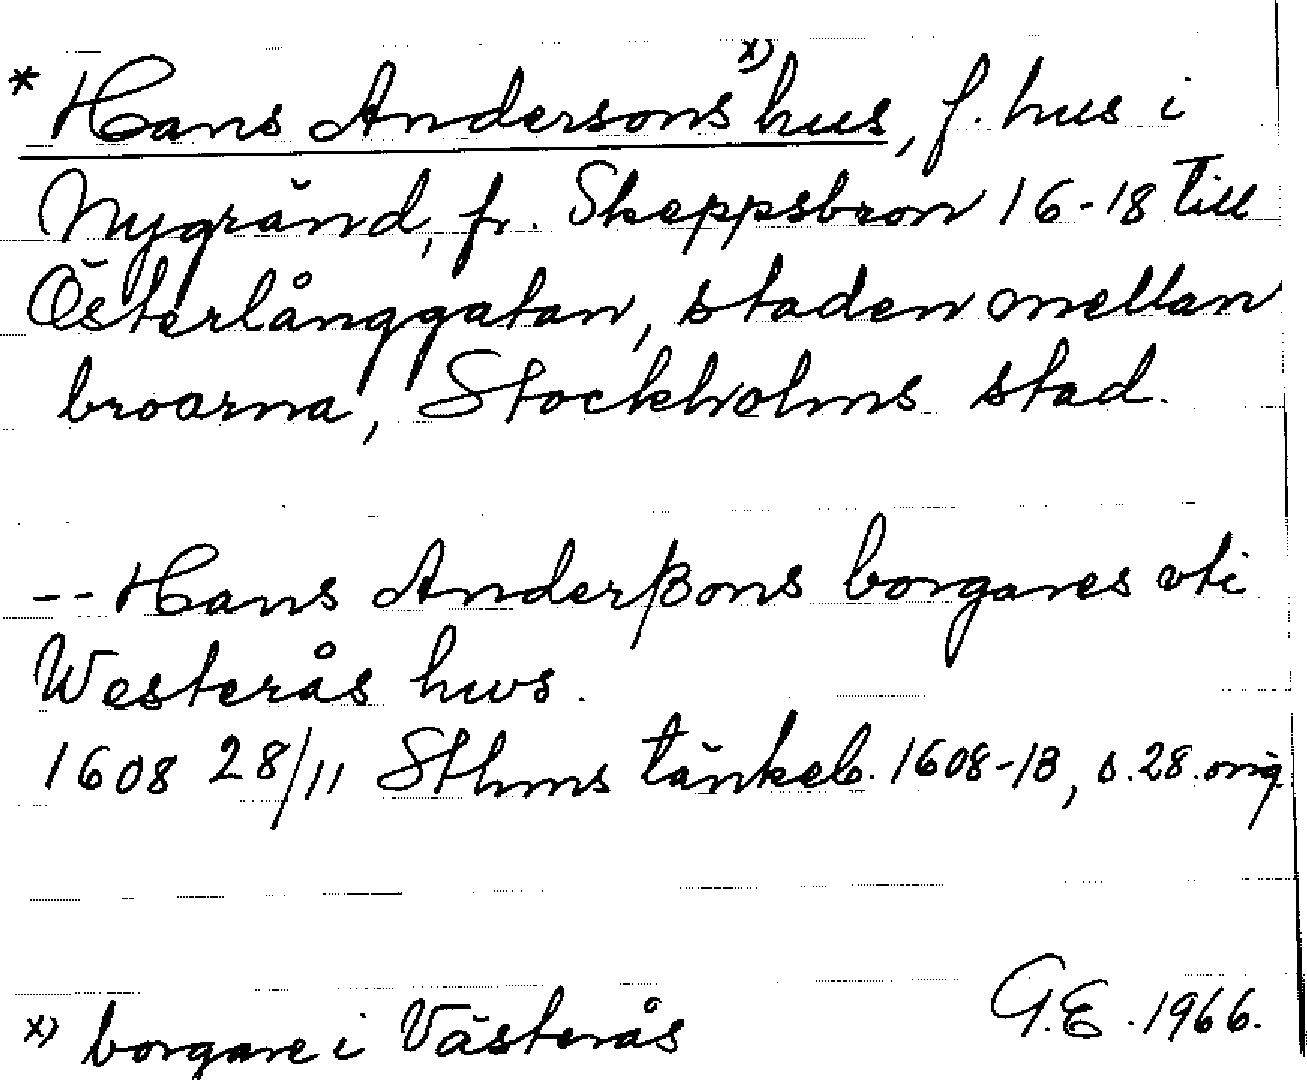 * Hans Andersons x) hus, f. hus i
Nygränd, fr. Skeppsbron 16-18 till
Österlånggatan, staden mellan
broarna, Stockholms stad.
-- Hans Anderßons borgares vti
Westerås hws.
1608 28/11 Sthms tänkeb. 1608-13, s. 28. orig.
x) borgare i Västerås
G.E. 1966.